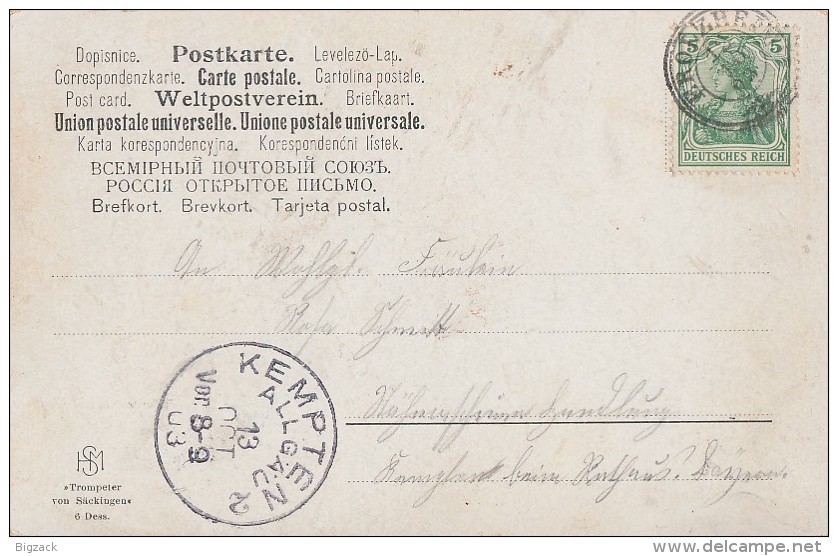 Dopisnice. Postkarte. Levelezö-Lap.
Correspondenzkarte. Carte postale. Cartolina postale.
Post card. Weltpostverein. Briefkaart.
Union postale universelle. Unione postale universale.
Karta korespondencyjna. Korespondenční lístek.
ВСЕМІРНЫЙ ПОЧТОВЫЙ СОЮЗЪ.
РОССІЯ ОТКРЫТОЕ ПИСЬМО.
Brefkort. Brevkort. Tarjeta postal.
5 5
DEUTSCHES REICH
An Wohlgb. Fräulein
Rosa Schmitt
Handlung
Kempten beim Rathaus. Bayern.
KEMPTEN 2
ALLGÄU
13
OCT
Vor. 8-9
03
HSM
»Trompeter
von Säckingen«
6 Dess.
Bigzack
www.delcampe.net